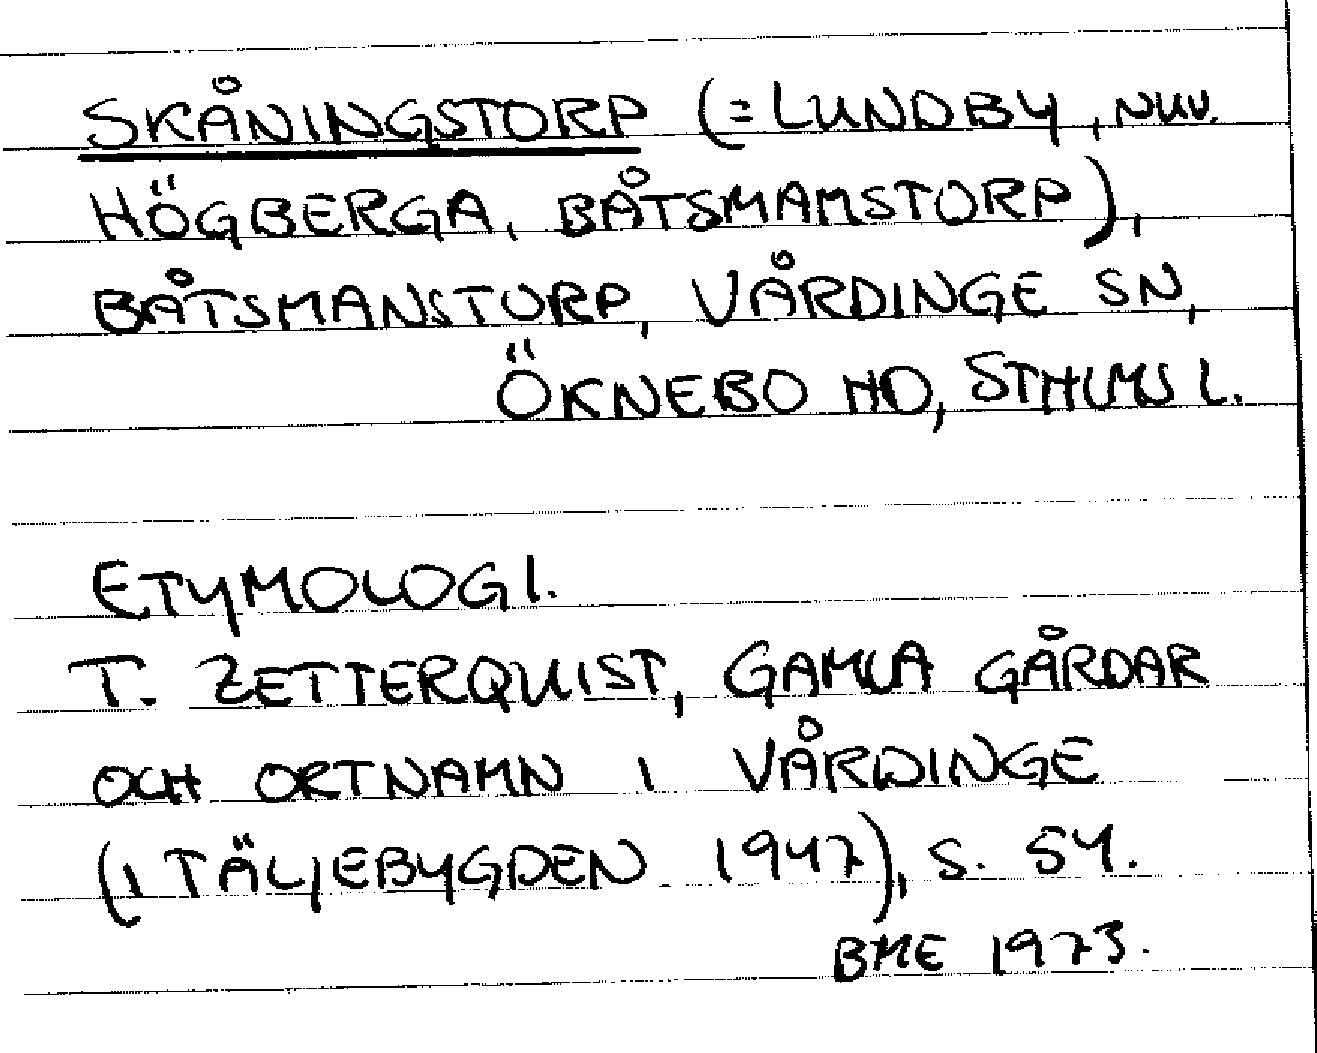 SKÅNINGSTORP (=LUNDBY, NUV.
HÖGBERGA, BÅTSMANSTORP),
BÅTSMANSTORP, VÅRDINGE SN,
ÖKNEBO HD, STHLMS L.
ETYMOLOGI.
T. ZETTERQUIST, GAMLA GÅRDAR
OCH ORTNAMN I VÅRDINGE
(I TÄLJEBYGDEN 1947), S. 54.
BME 1973.